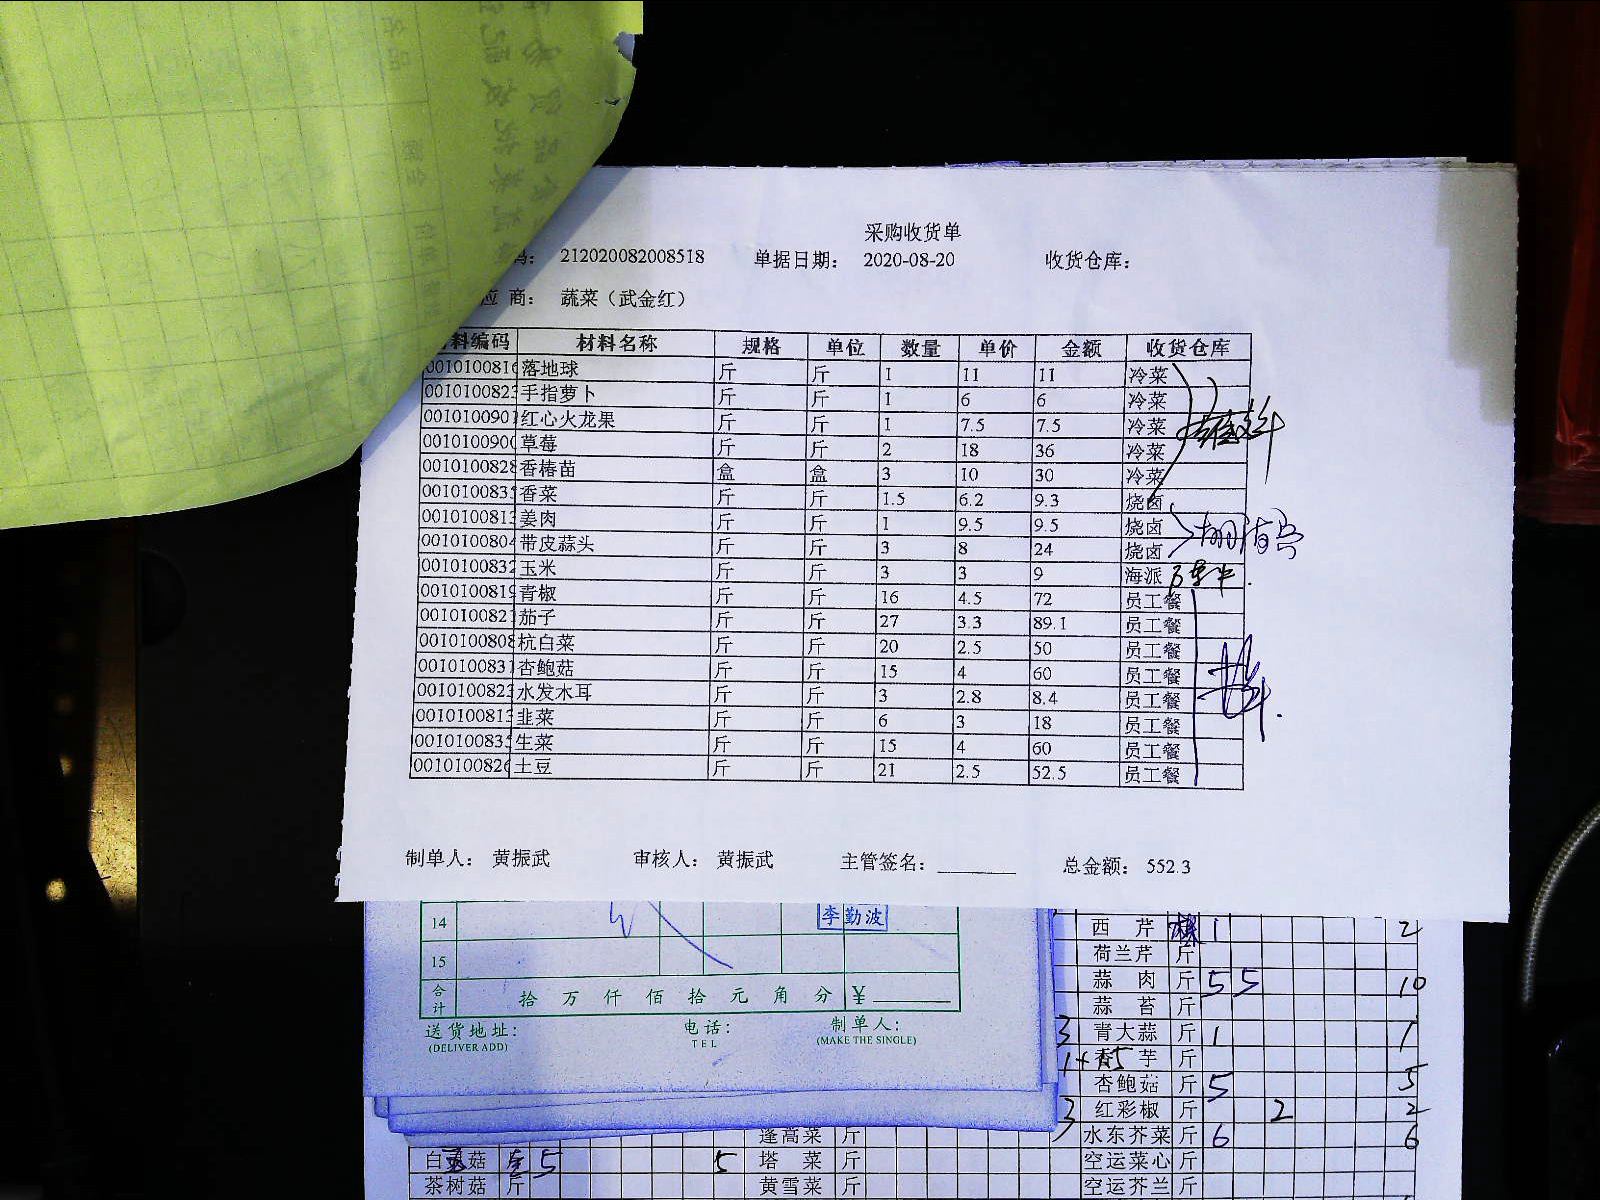 采购收货单
码： 212020082008518 单据日期： 2020-08-20 收货仓库：
应 商： 蔬菜（武金红）
料编码 材料名称 规格 单位 数量 单价 金额 收货仓库
001010081 落地球 斤 斤 1 11 11 冷菜
001010082 手指萝卜 斤 斤 1 6 6 冷菜
001010090 红心火龙果 斤 斤 1 7.5 7.5 冷菜
001010090 草莓 斤 斤 2 18 36 冷菜
001010082 香椿苗 盒 盒 3 10 30 冷菜
001010083 香菜 斤 斤 1.5 6.2 9.3 烧卤
001010081 姜肉 斤 斤 1 9.5 9.5 烧卤
001010080 带皮蒜头 斤 斤 3 8 24 烧卤
001010083 玉米 斤 斤 3 3 9 海派
001010081 青椒 斤 斤 16 4.5 72 员工餐
001010082 茄子 斤 斤 27 3.3 89.1 员工餐
001010080 杭白菜 斤 斤 20 2.5 50 员工餐
001010083 杏鲍菇 斤 斤 15 4 60 员工餐
001010082 水发木耳 斤 斤 3 2.8 8.4 员工餐
001010081 韭菜 斤 斤 6 3 18 员工餐
001010083 生菜 斤 斤 15 4 60 员工餐
001010082 土豆 斤 斤 21 2.5 52.5 员工餐
制单人： 黄振武 审核人： 黄振武 主管签名： 总金额： 552.3
14 李勤波
15
合计 拾 万 仟 佰 拾 元 角 分 ¥
送货地址： 电话： 制单人：
(DELIVER ADD) TEL (MAKE THE SINGLE)
西 芹 1 2
荷兰芹 斤
蒜 肉 斤 5 5 10
蒜 苔 斤
3 青大蒜 斤 1 1
香 芋 斤
杏鲍菇 斤 5 5
3 红彩椒 斤 2 2
水东芥菜 斤 6 6
空运菜心 斤
空运芥兰 斤
蓬蒿菜 斤
白 菇 5 5 塔 菜 斤
茶树菇 斤 黄雪菜 斤